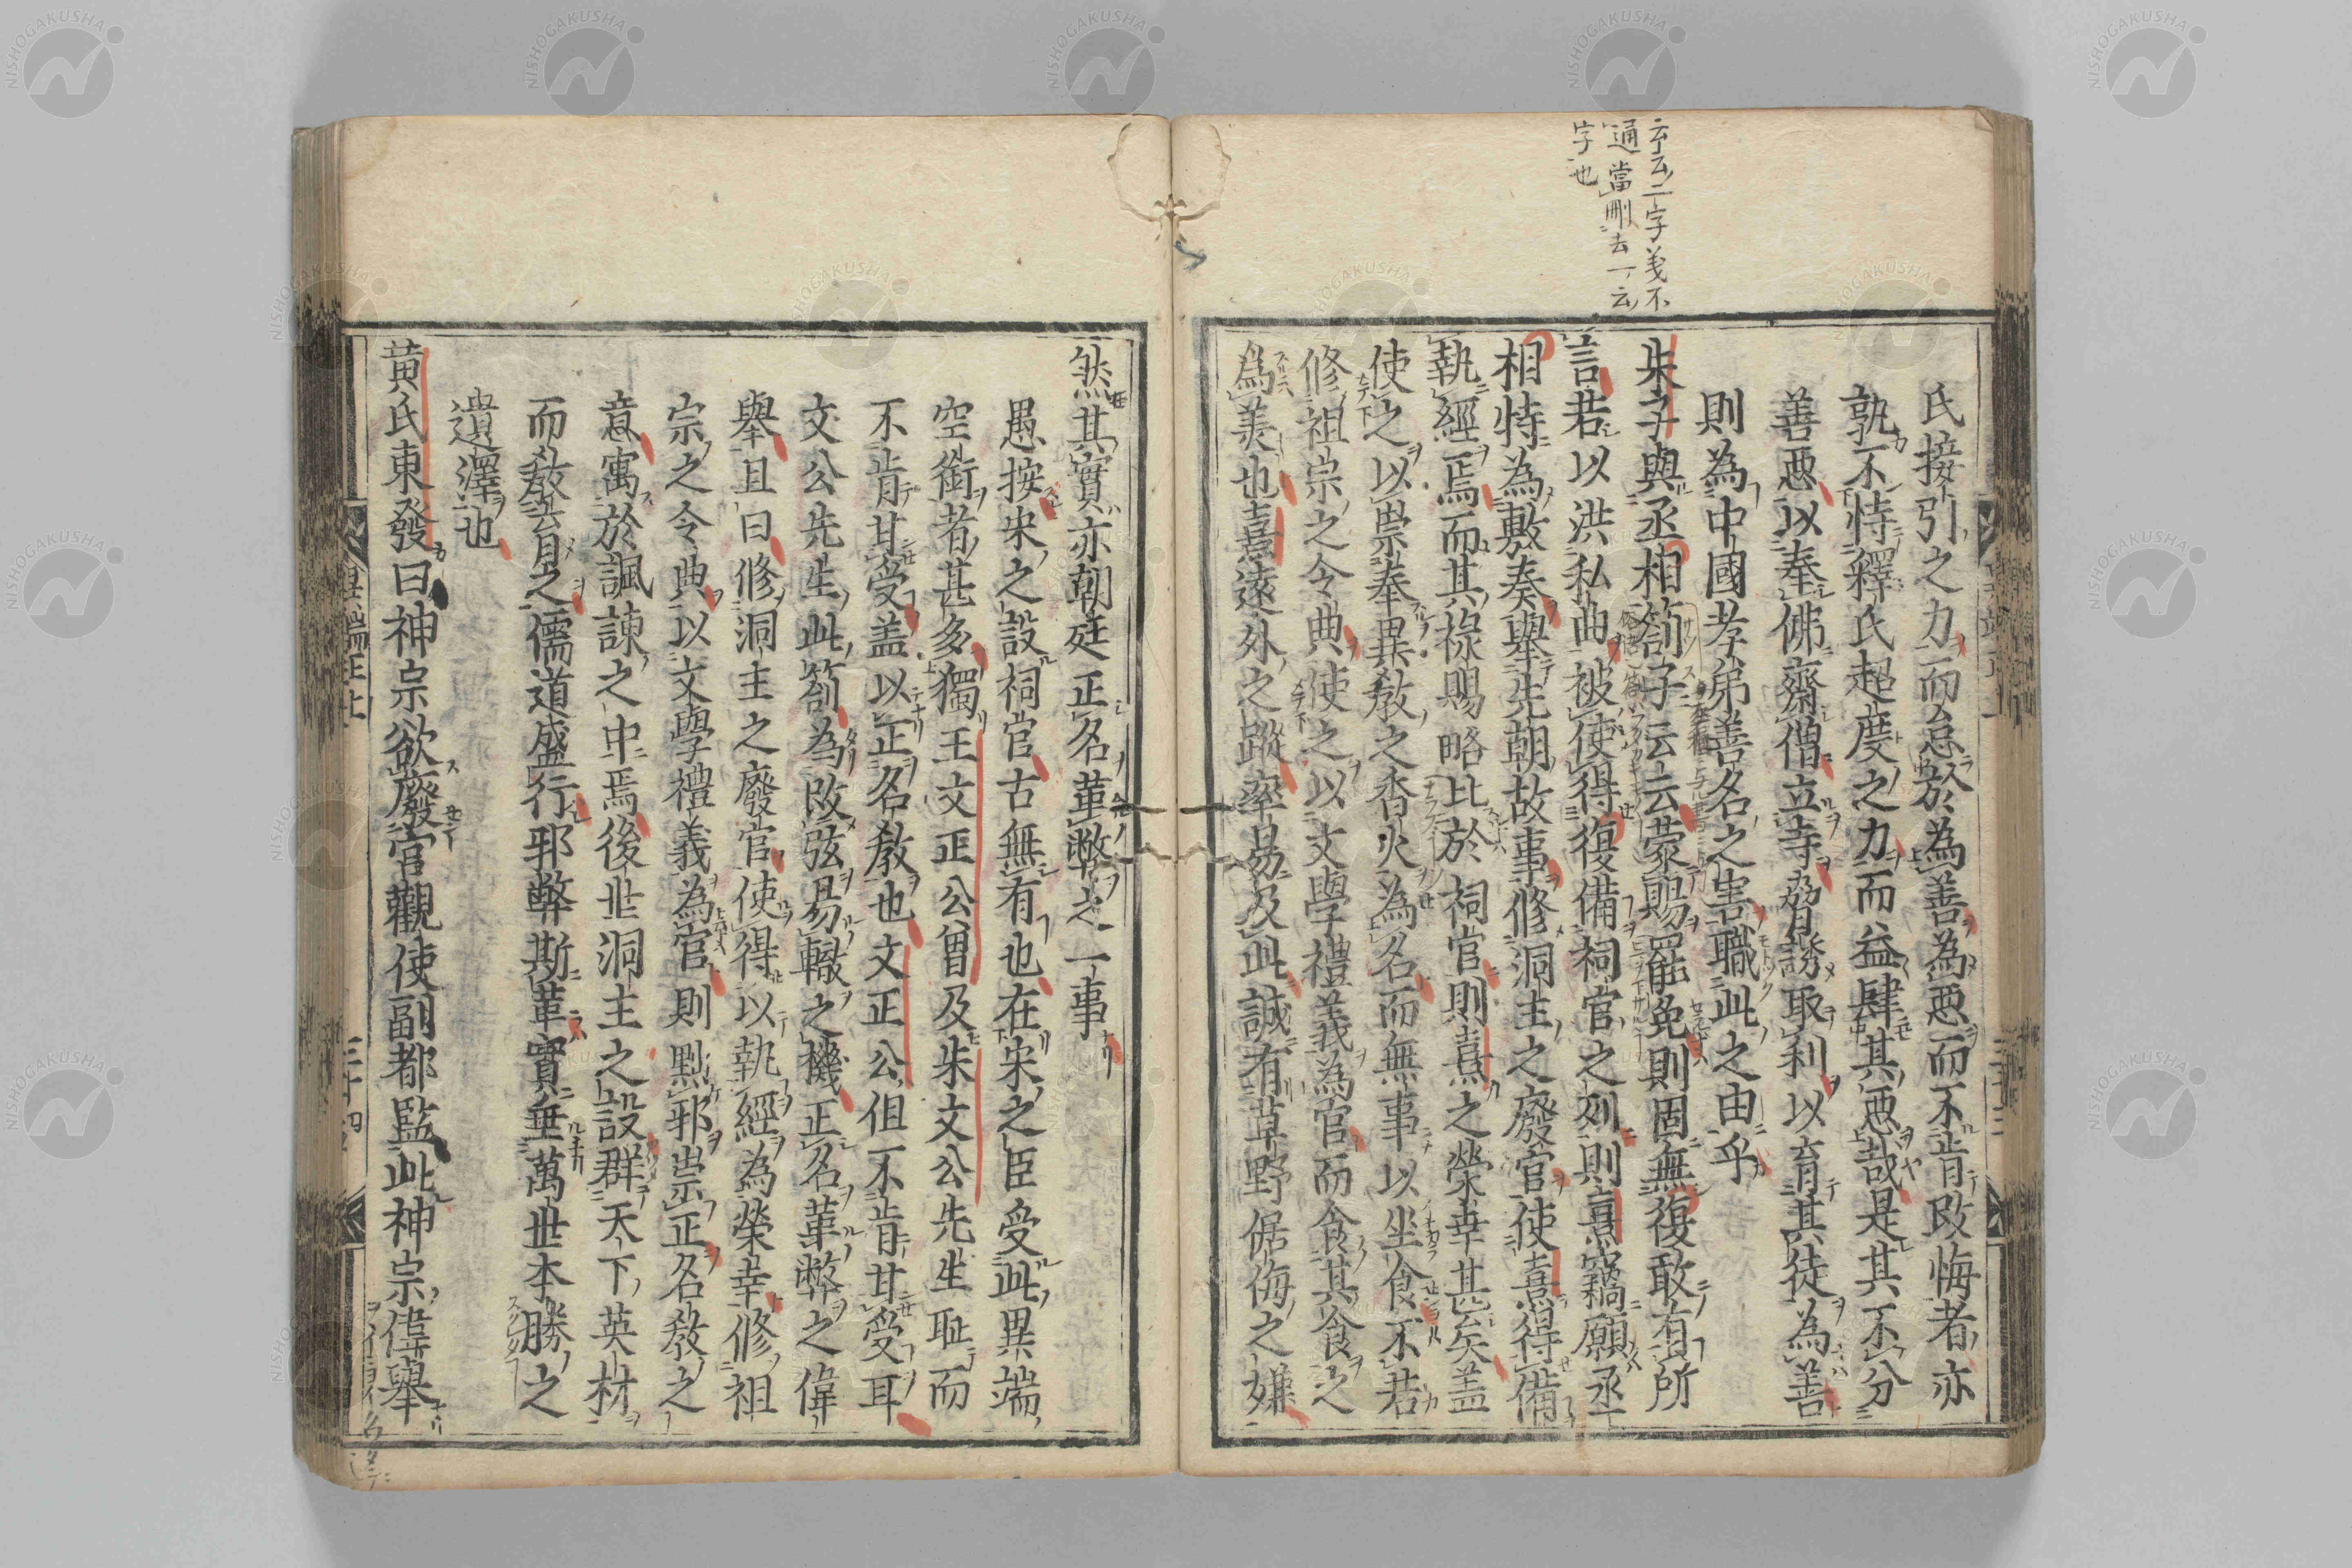 云云二字義不
通當刪去一云
字也
氏接引之力而怠於為善為惡而不肯改悔者亦
孰不恃釋氏超度之力而益肆其惡哉是其不分
善惡以奉佛齋僧立寺勸誘取利以育其徒為善
則為中國孝弟善名之害職此之由乎
朱子與丞相劄子云云蒙賜罷免則固無復敢有所
言若以洪私曲被使得復備祠官之列則熹竊願丞
相特為敷奏舉先朝故事修洞主之廢官使熹得備
執經焉而其祿賜略比於祠官則熹之榮幸甚矣盖
使之以崇奉異教之香火為名而無事以坐食不若
修祖宗之令典使之以文學禮義為官而食其食之
為美也熹遠外之蹤率易及此誠有草野倨侮之嫌
然其實亦朝廷正名革弊之一事
愚按宋之設祠官古無有也在宋之臣受此異端
空銜者甚多獨王文正公曾及朱文公先生恥而
不肯甘受盖以正名教也文正公但不肯甘受耳
文公先生此劄為改弦易轍之機正名革弊之偉
舉且曰修洞主之廢官使得以執經為榮幸修祖
宗之令典以文學禮義為官則黜邪崇正名教之
意寓於諷諫之中焉後世洞主之設群天下英材
而教育之儒道盛行邪弊斯革實垂萬世本勝之
遺澤也
黄氏東發曰神宗欲廢宫觀使副都監此神宗偉舉
異端正上
三十四
NISHOGAKUSHA